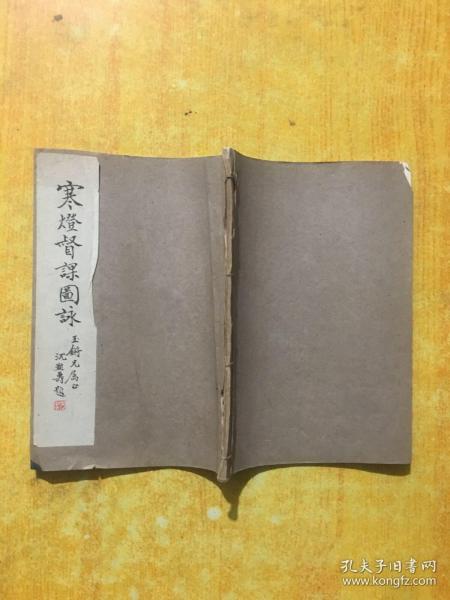 寒燈督課圖詠
玉錡兄屬正
孔夫子旧书网
www.kongfz.com